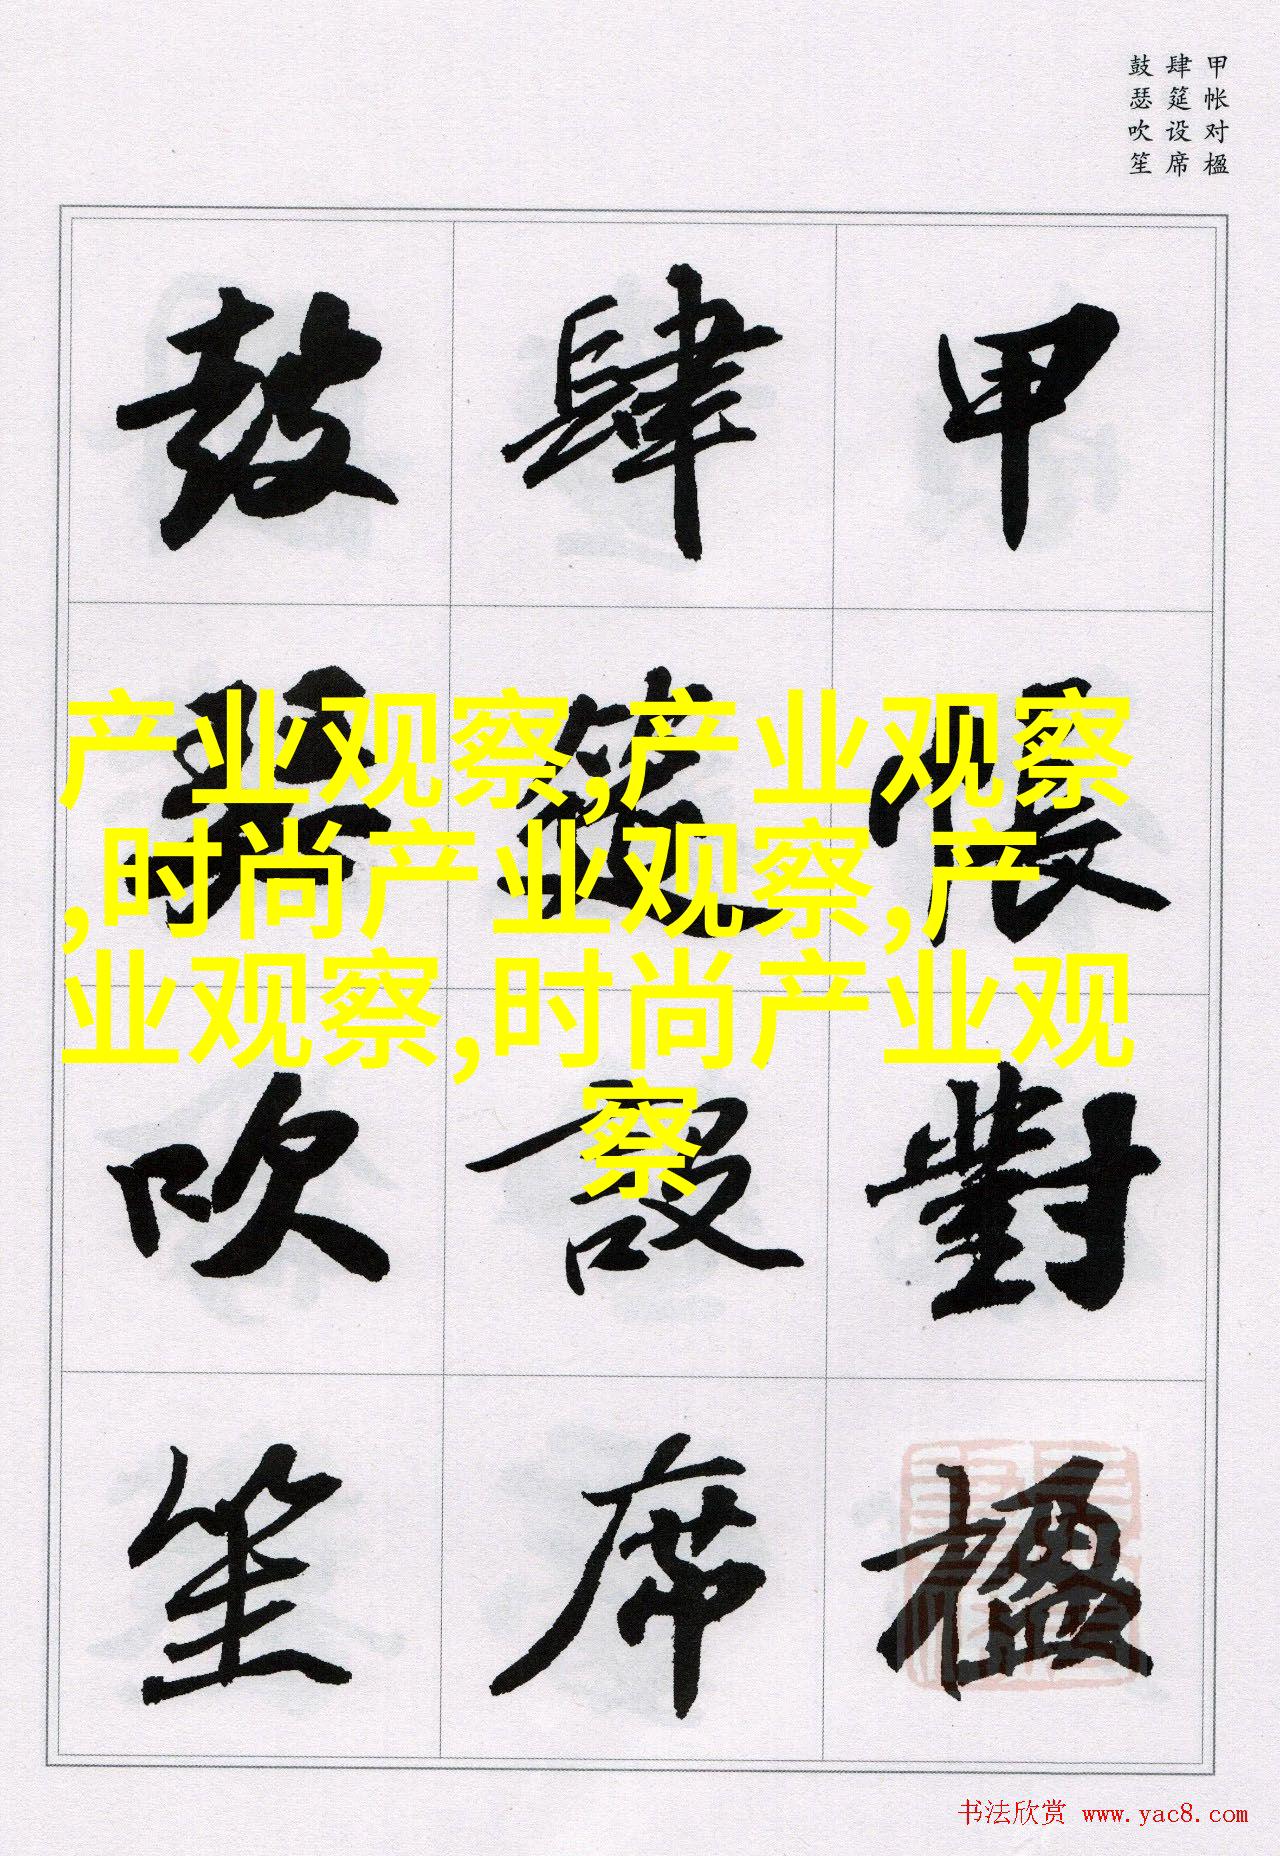 甲帐对楹
肆筵设席
鼓瑟吹笙
甲帳對楹
肆筵設席
鼓瑟吹笙
产业观察,产业观察
,时尚产业观察,产
业观察,时尚产业观
察
书法欣赏 www.yac8.com